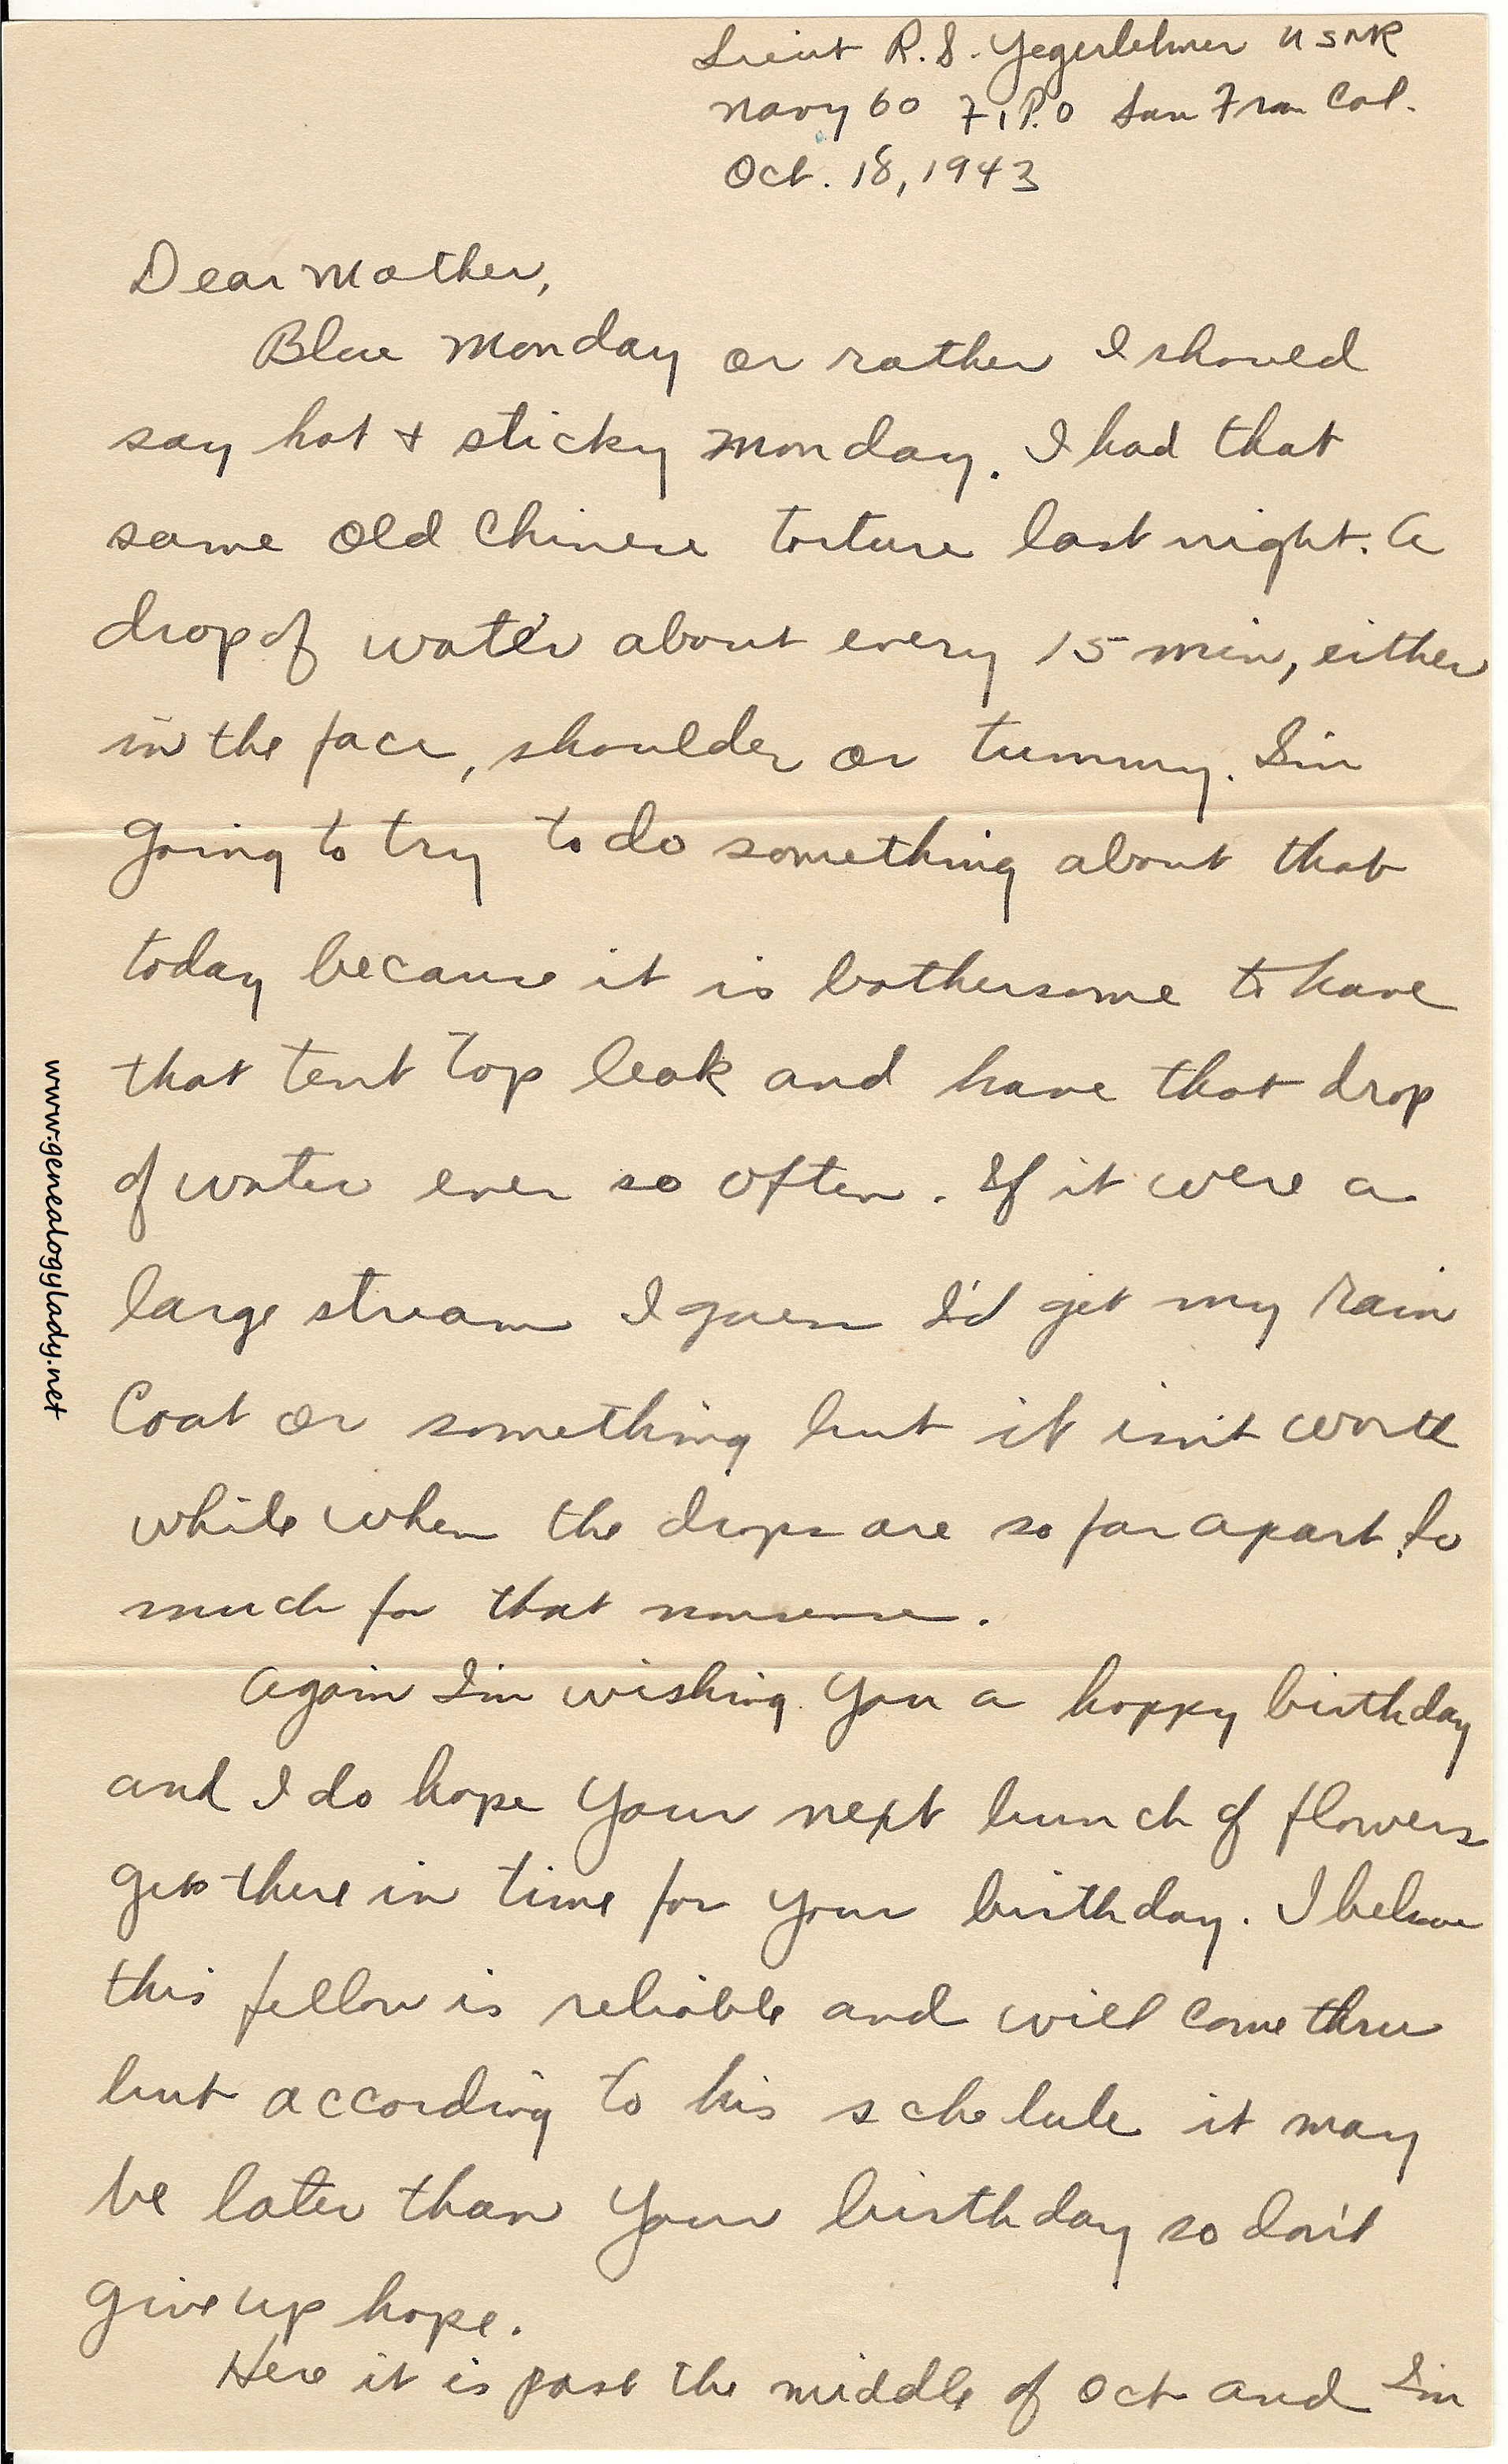 Lieut R.S. Yegerlehner USNR
Navy 60 F.P.O San Fran Cal.
Oct. 18, 1943
Dear Mother,
Blue Monday or rather I should
say hot & sticky Monday. I had that
same old Chinese torture last night. A
drop of water about every 15 min, either
in the face, shoulder or tummy. I'm
going to try to do something about that
today because it is bothersome to have
that tent top leak and have that drop
of water ever so often. If it were a
large stream I guess I'd get my rain
Coat or something but it isn't worth
while when the drops are so far apart. So
much for that nonsense.
Again I'm wishing you a happy birthday
and I do hope your next bunch of flowers
gets there in time for your birthday. I believe
this fellow is reliable and will come thru
but according to his schelule it may
be later than your birthday so don't
give up hope.
Here it is past the middle of Oct and I'm
www.genealogylady.net